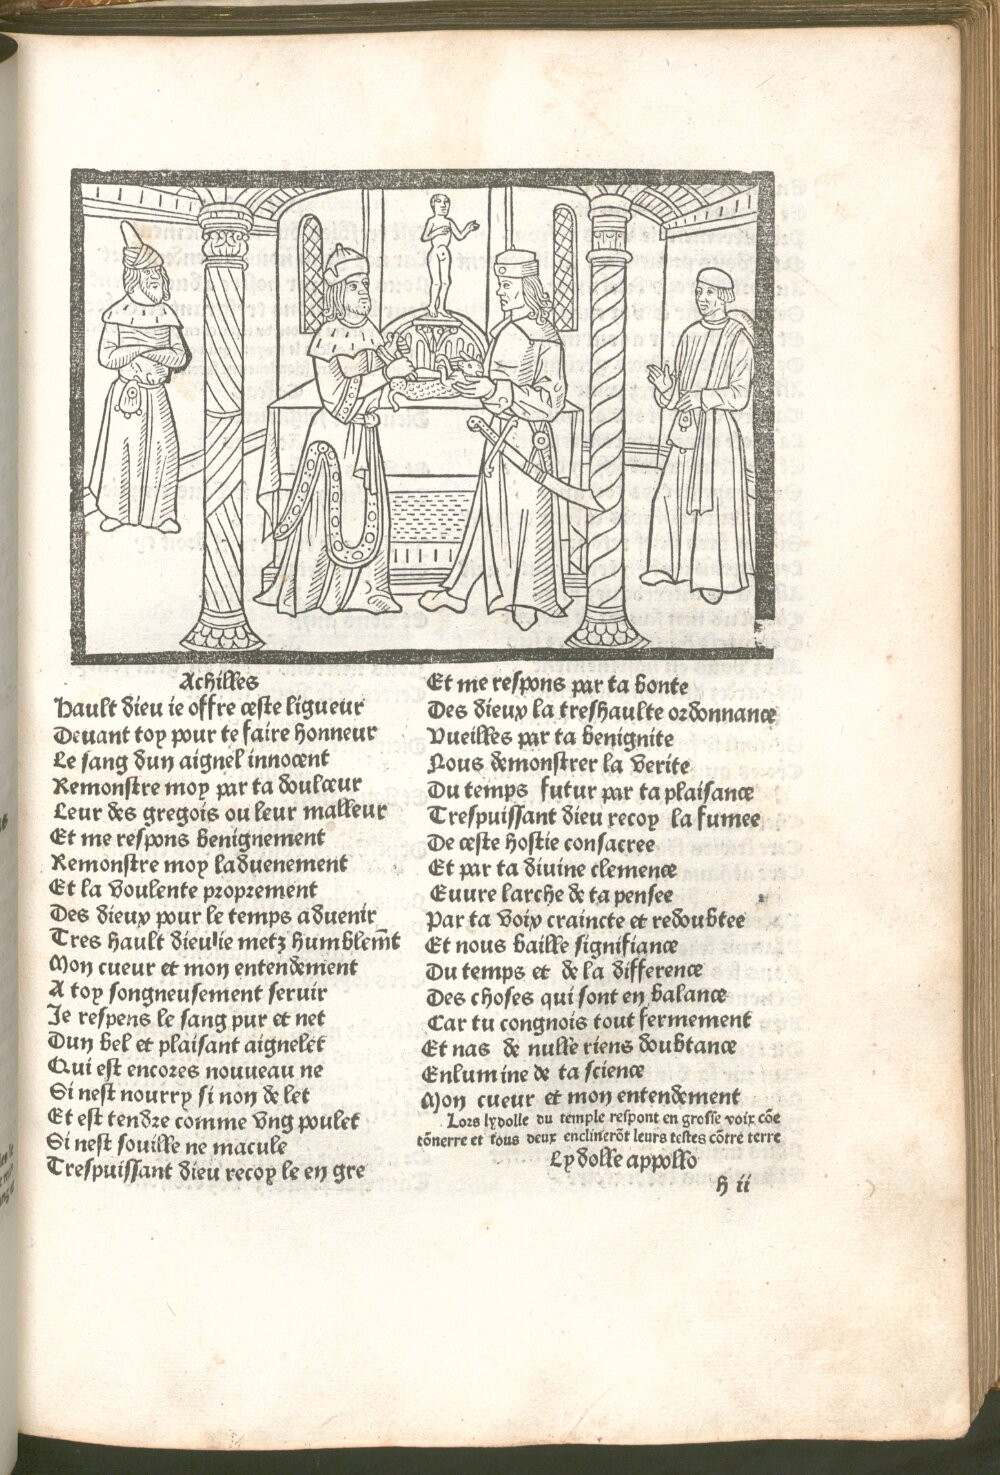 Achilles
Hault dieu ie offre ceste ligueur
Deuant toy pour te faire honneur
Le sang dun aignel innocent
Remonstre moy par ta doulceur
Leur des gregois ou leur malleur
Et me respons benignement
Remonstre moy laduenement
Et la voulente proprement
Des dieux pour le temps aduenir
Tres hault dieu ie metz humblem̄t
Mon cueur et mon entendement
A toy songneusement seruir
Je respens le sang pur et net
Dun bel et plaisant aignelet
Qui est encores nouueau ne
Si nest nourry si non de let
Et est tendre comme vng poulet
Si nest souille ne macule
Trespuissant dieu recoy le en gre
Et me respons par ta bonte
Des dieux la treshaulte ordonnance
Vueilles par ta benignite
Nous demonstrer la verite
Du temps futur par ta plaisance
Trespuissant dieu recoy la fumee
De ceste hostie consacree
Et par ta diuine clemence
Euure larche de ta pensee
Par ta voix craincte et redoubtee
Et nous baille signifiance
Du temps et de la difference
Des choses qui sont en balance
Car tu congnois tout fermement
Et nas de nulle riens doubtance
Enlumine de ta science
Mon cueur et mon entendement
Lors lydolle du temple respont en grosse voix cōe
tōnerre et tous deux enclinerōt leurs testes cōtre terre
Lydolle appollo
h ii